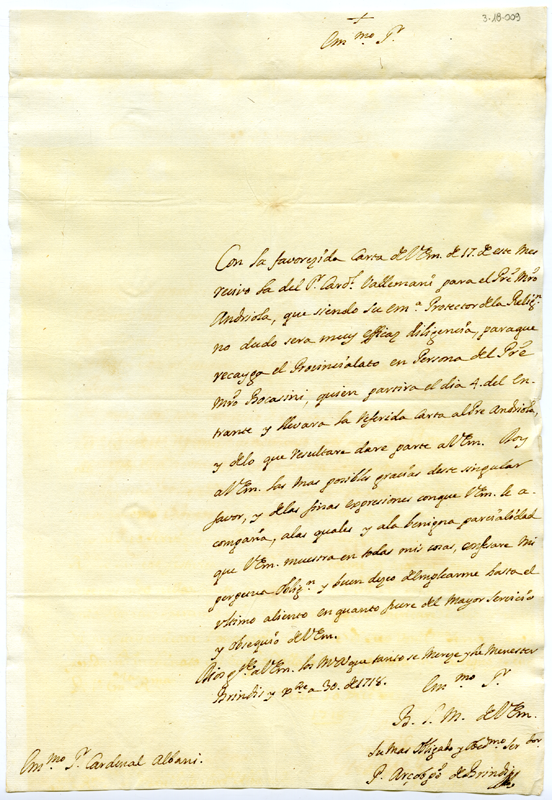 3-18-009
+
Em.mo S.r
Con la favorezida Carta de V.Em. de 17. de este Mes
recivo la del S.r Card.l Vallemani para el P.re Mro
Andriola, que siendo su Em.a Protector de la Relig.n
no dudo sera muy efficaz diligencia, paraque
recayga el Provincialato en Persona del P.re
Mro Bocasini, quien partira el dia 4. del en-
trante y llevara la referida Carta al Pre Andriola,
y de lo que resultare dare parte a V.Em. Doy
a V.Em. las mas posibles gracias deste singular
favor, y de las finas expresiones conque V.Em. le a-
compaña, a las quales y a la benigna parcialidad
que V.Em. muestra en todas mis cosas, confesare mi
perpetua oblig.n y buen deseo de emplearme hasta el
ultimo aliento en quanto fuere del Mayor Servicio
y obsequio de V.Em.
Dios g.de a V.Em. los que tanto se Mereze y he Menester
Brindis y a 30. de 1718.
Em.mo S.r
B. L. M. de V.Em.
su mas obligado y Obed.mo Ser.dor
P. Arçobpô de Brindis
Em.mo S.r Cardenal Albani.